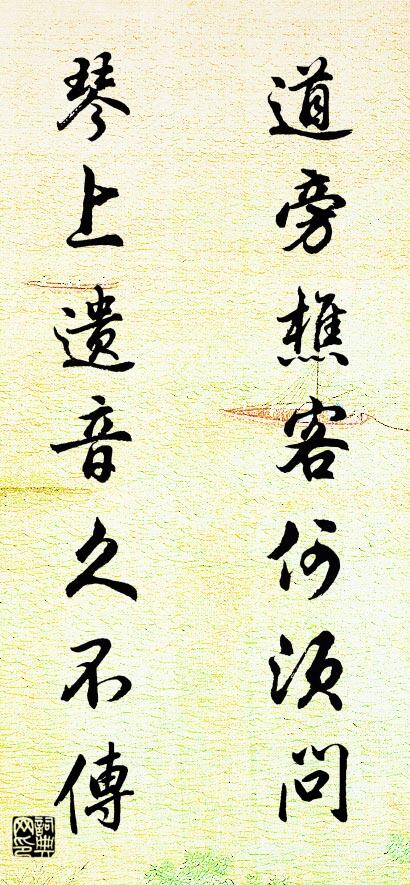 道旁樵客何須問
琴上遺音久不傳
詞典網印